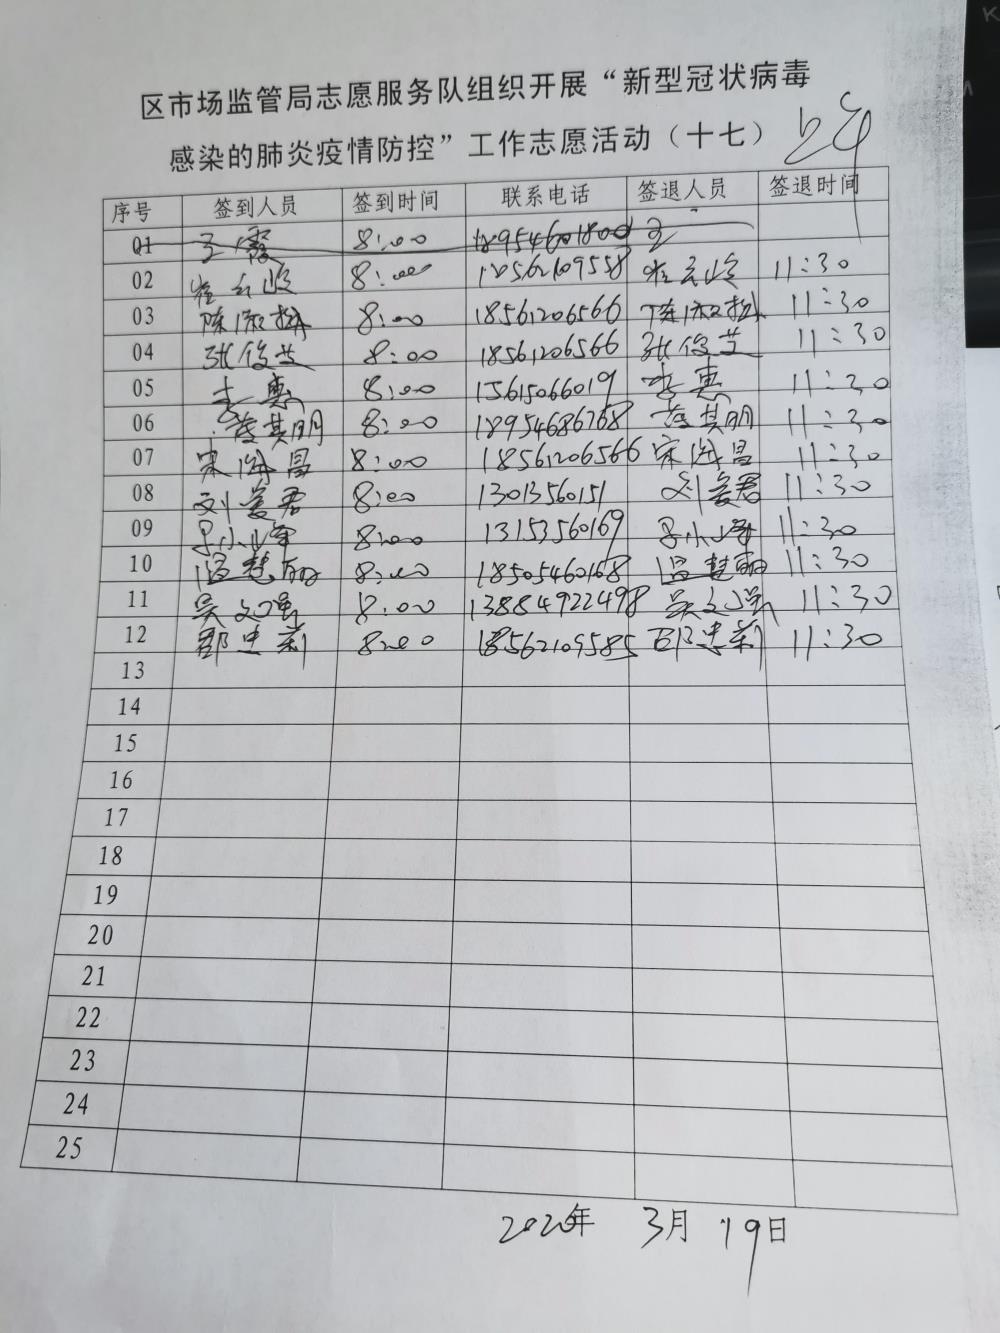 区市场监管局志愿服务队组织开展“新型冠状病毒
感染的肺炎疫情防控”工作志愿活动（十七） 上午
序号 签到人员 签到时间 联系电话 签退人员 签退时间
01 王霞 8:00 18954601800 王
02 8:00 18562109558 11:30
03 陈淑梅 8:00 18561206566 陈淑梅 11:30
04 张俊芝 8:00 18561206566 张俊芝 11:30
05 李惠 8:00 15615066019 李惠 11:30
06 其明 8:00 18954686768 其明 11:30
07 宋海昌 8:00 18561206566 宋海昌 11:30
08 刘爱君 8:00 13013560151 刘爱君 11:30
09 小峰 8:00 13153560169 小峰 11:30
10 温慧丽 8:00 18505460168 温慧丽 11:30
11 吴文强 8:00 13884922498 吴文强 11:30
12 莉 8:00 18562109585 莉 11:30
13
14
15
16
17
18
19
20
21
22
23
24
25
2020年 3月 19日